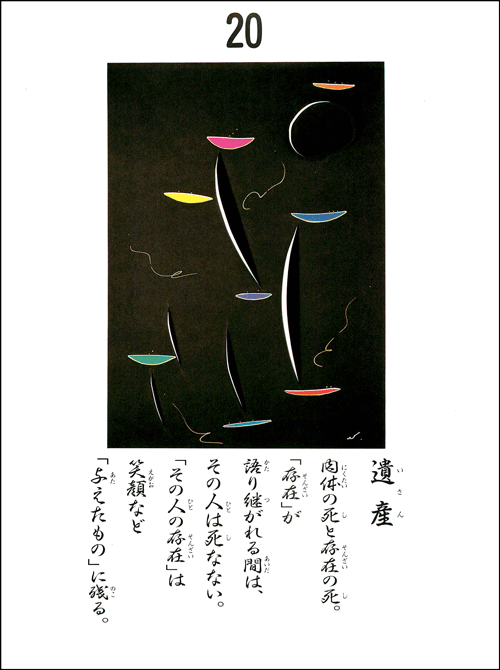 20
遺産
肉体の死と存在の死。
「存在」が
語り継がれる間は、
その人は死なない。
「その人の存在」は
笑顔など
「与えたもの」に残る。